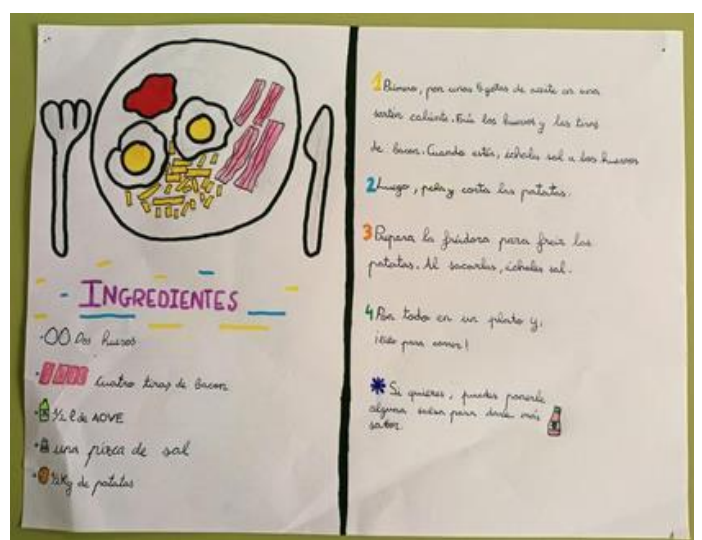 INGREDIENTES
Dos huevos
Cuatro tiras de bacon
½ l de AOVE
una pizca de sal
½ Kg de patatas
1 Primero, pon unas gotas de aceite en una
sartén caliente. Fríe los huevos y las tiras
de bacon. Cuando estén, échale sal a los huevos
2 Luego, pela y corta las patatas.
3 Prepara la freidora para freír las
patatas. Al sacarlas, échales sal.
4 Pon todo en un plato y,
¡listo para comer!
* Si quieres, puedes ponerle
alguna salsa para darle más
sabor.